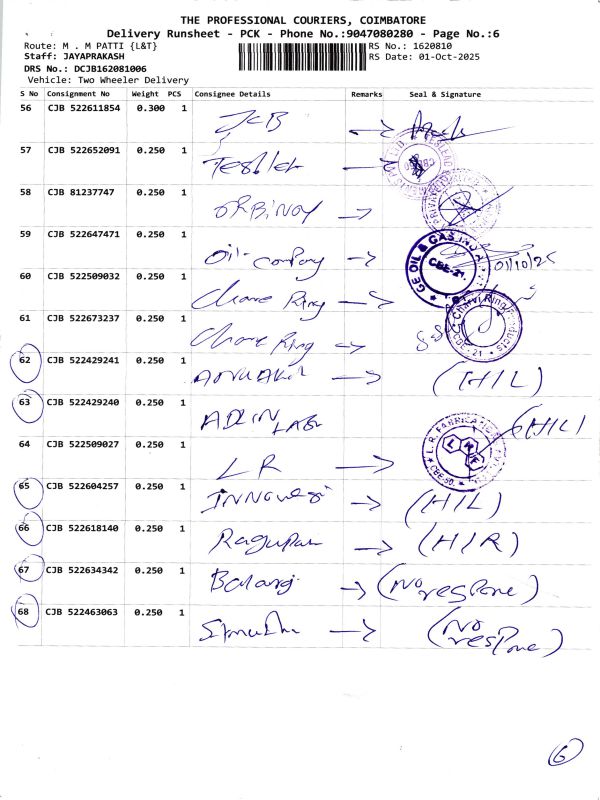 THE PROFESSIONAL COURIERS, COIMBATORE
Delivery Runsheet - PCK - Phone No.:9047080280 - Page No.:6
Route: M . M PATTI {L&T}
RS No.: 1620810
Staff: JAYAPRAKASH
RS Date: 01-Oct-2025
DRS No.: DCJB162081006
Vehicle: Two Wheeler Delivery
S No Consignment No Weight PCS Consignee Details Remarks Seal & Signature
56 CJB 522611854 0.300 1 JCB
57 CJB 522652091 0.250 1
58 CJB 81237747 0.250 1
59 CJB 522647471 0.250 1 Oil company 01/10/25
GE OIL & GAS CBE-21.
60 CJB 522509032 0.250 1 Ring
61 CJB 522673237 0.250 1 Ring
62 CJB 522429241 0.250 1 (H/L)
63 CJB 522429240 0.250 1 (H/L)
64 CJB 522509027 0.250 1 LR
L.R. FABRICATION
65 CJB 522604257 0.250 1 (H/L)
66 CJB 522618140 0.250 1 (H/R)
67 CJB 522634342 0.250 1 Balaji (No respone)
68 CJB 522463063 0.250 1 (No respone)
6